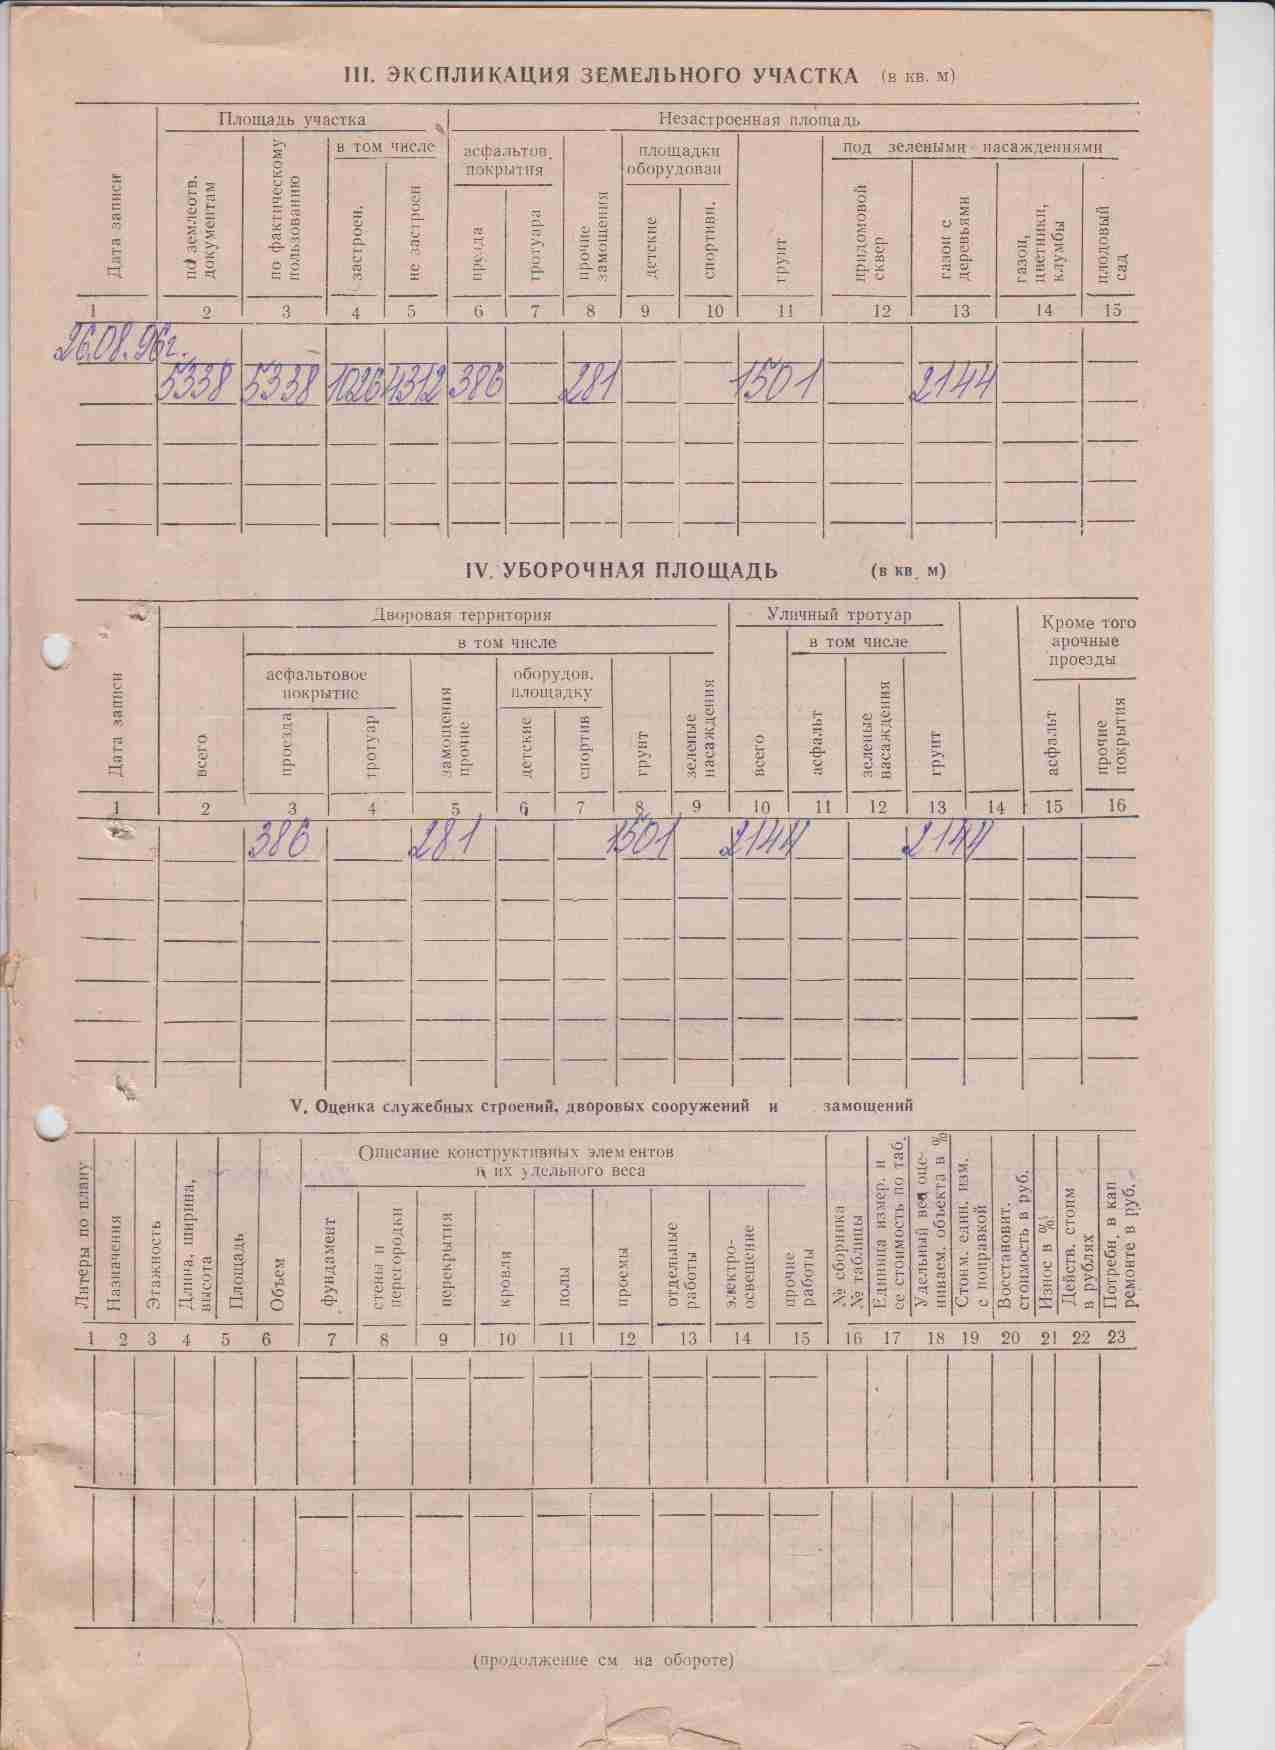 III. ЭКСПЛИКАЦИЯ ЗЕМЕЛЬНОГО УЧАСТКА (в кв. м)
Площадь участка Незастроенная площадь
в том числе асфальтов. покрытия площадки оборудован под зелеными насаждениями
Дата записи
по землеотв. документам
по фактическому пользованию
застроен.
не застроен
проезда
тротуара
прочие замощения
детские
спортивн.
грунт
придомовой сквер
газон с деревьями
газон, цветники, клумбы
плодовый сад
1 2 3 4 5 6 7 8 9 10 11 12 13 14 15
26.08.96г.
5338 5338 1026 4312 386 281 1501 2144
IV. УБОРОЧНАЯ ПЛОЩАДЬ (в кв. м)
Дворовая территория Уличный тротуар Кроме того арочные проезды
в том числе в том числе
асфальтовое покрытие оборудов. площадку
Дата записи
всего
проезда
тротуар
замощения прочие
детские
спортив
грунт
зеленые насаждения
всего
асфальт
зеленые насаждения
грунт
асфальт
прочие покрытия
1 2 3 4 5 6 7 8 9 10 11 12 13 14 15 16
386 281 1501 2144 2144
V. Оценка служебных строений, дворовых сооружений и замощений
Описание конструктивных элементов
и их удельного веса
Литеры по плану
Назначения
Этажность
Длина, ширина, высота
Площадь
Объем
фундамент
стены и перегородки
перекрытия
кровля
полы
проемы
отдельные работы
электро-освещение
прочие работы
№ сборника № таблицы
Единица измер. и ее стоимость по таб.
Удельный вес оце-ниваем. объекта в %
Стоим. един. изм. с поправкой
Восстановит. стоимость в руб.
Износ в %
Действ. стоим в рублях
Потребн. в кап ремонте в руб.
1 2 3 4 5 6 7 8 9 10 11 12 13 14 15 16 17 18 19 20 21 22 23
(продолжение см на обороте)